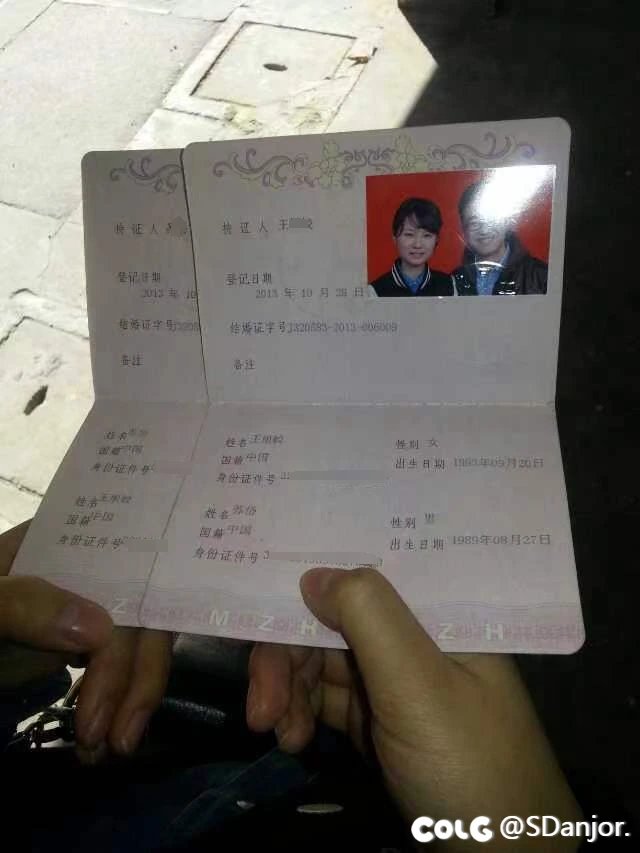 持证人
登记日期
2013 年 10
结婚证字号J3205
备注
姓名苏岱
国籍中国
身份证件号
姓名王
国籍中国
身份证件号
持证人 王
登记日期
2013 年 10 月 28 日
结婚证字号J320583-2013-006009
备注
姓名王
国籍中国
身份证件号 3
性别 女
出生日期 1993年09月20日
姓名苏岱
国籍中国
身份证件号 3
性别 男
出生日期 1989年08月27日
Z M Z H Z H
COLG @SDanjor.